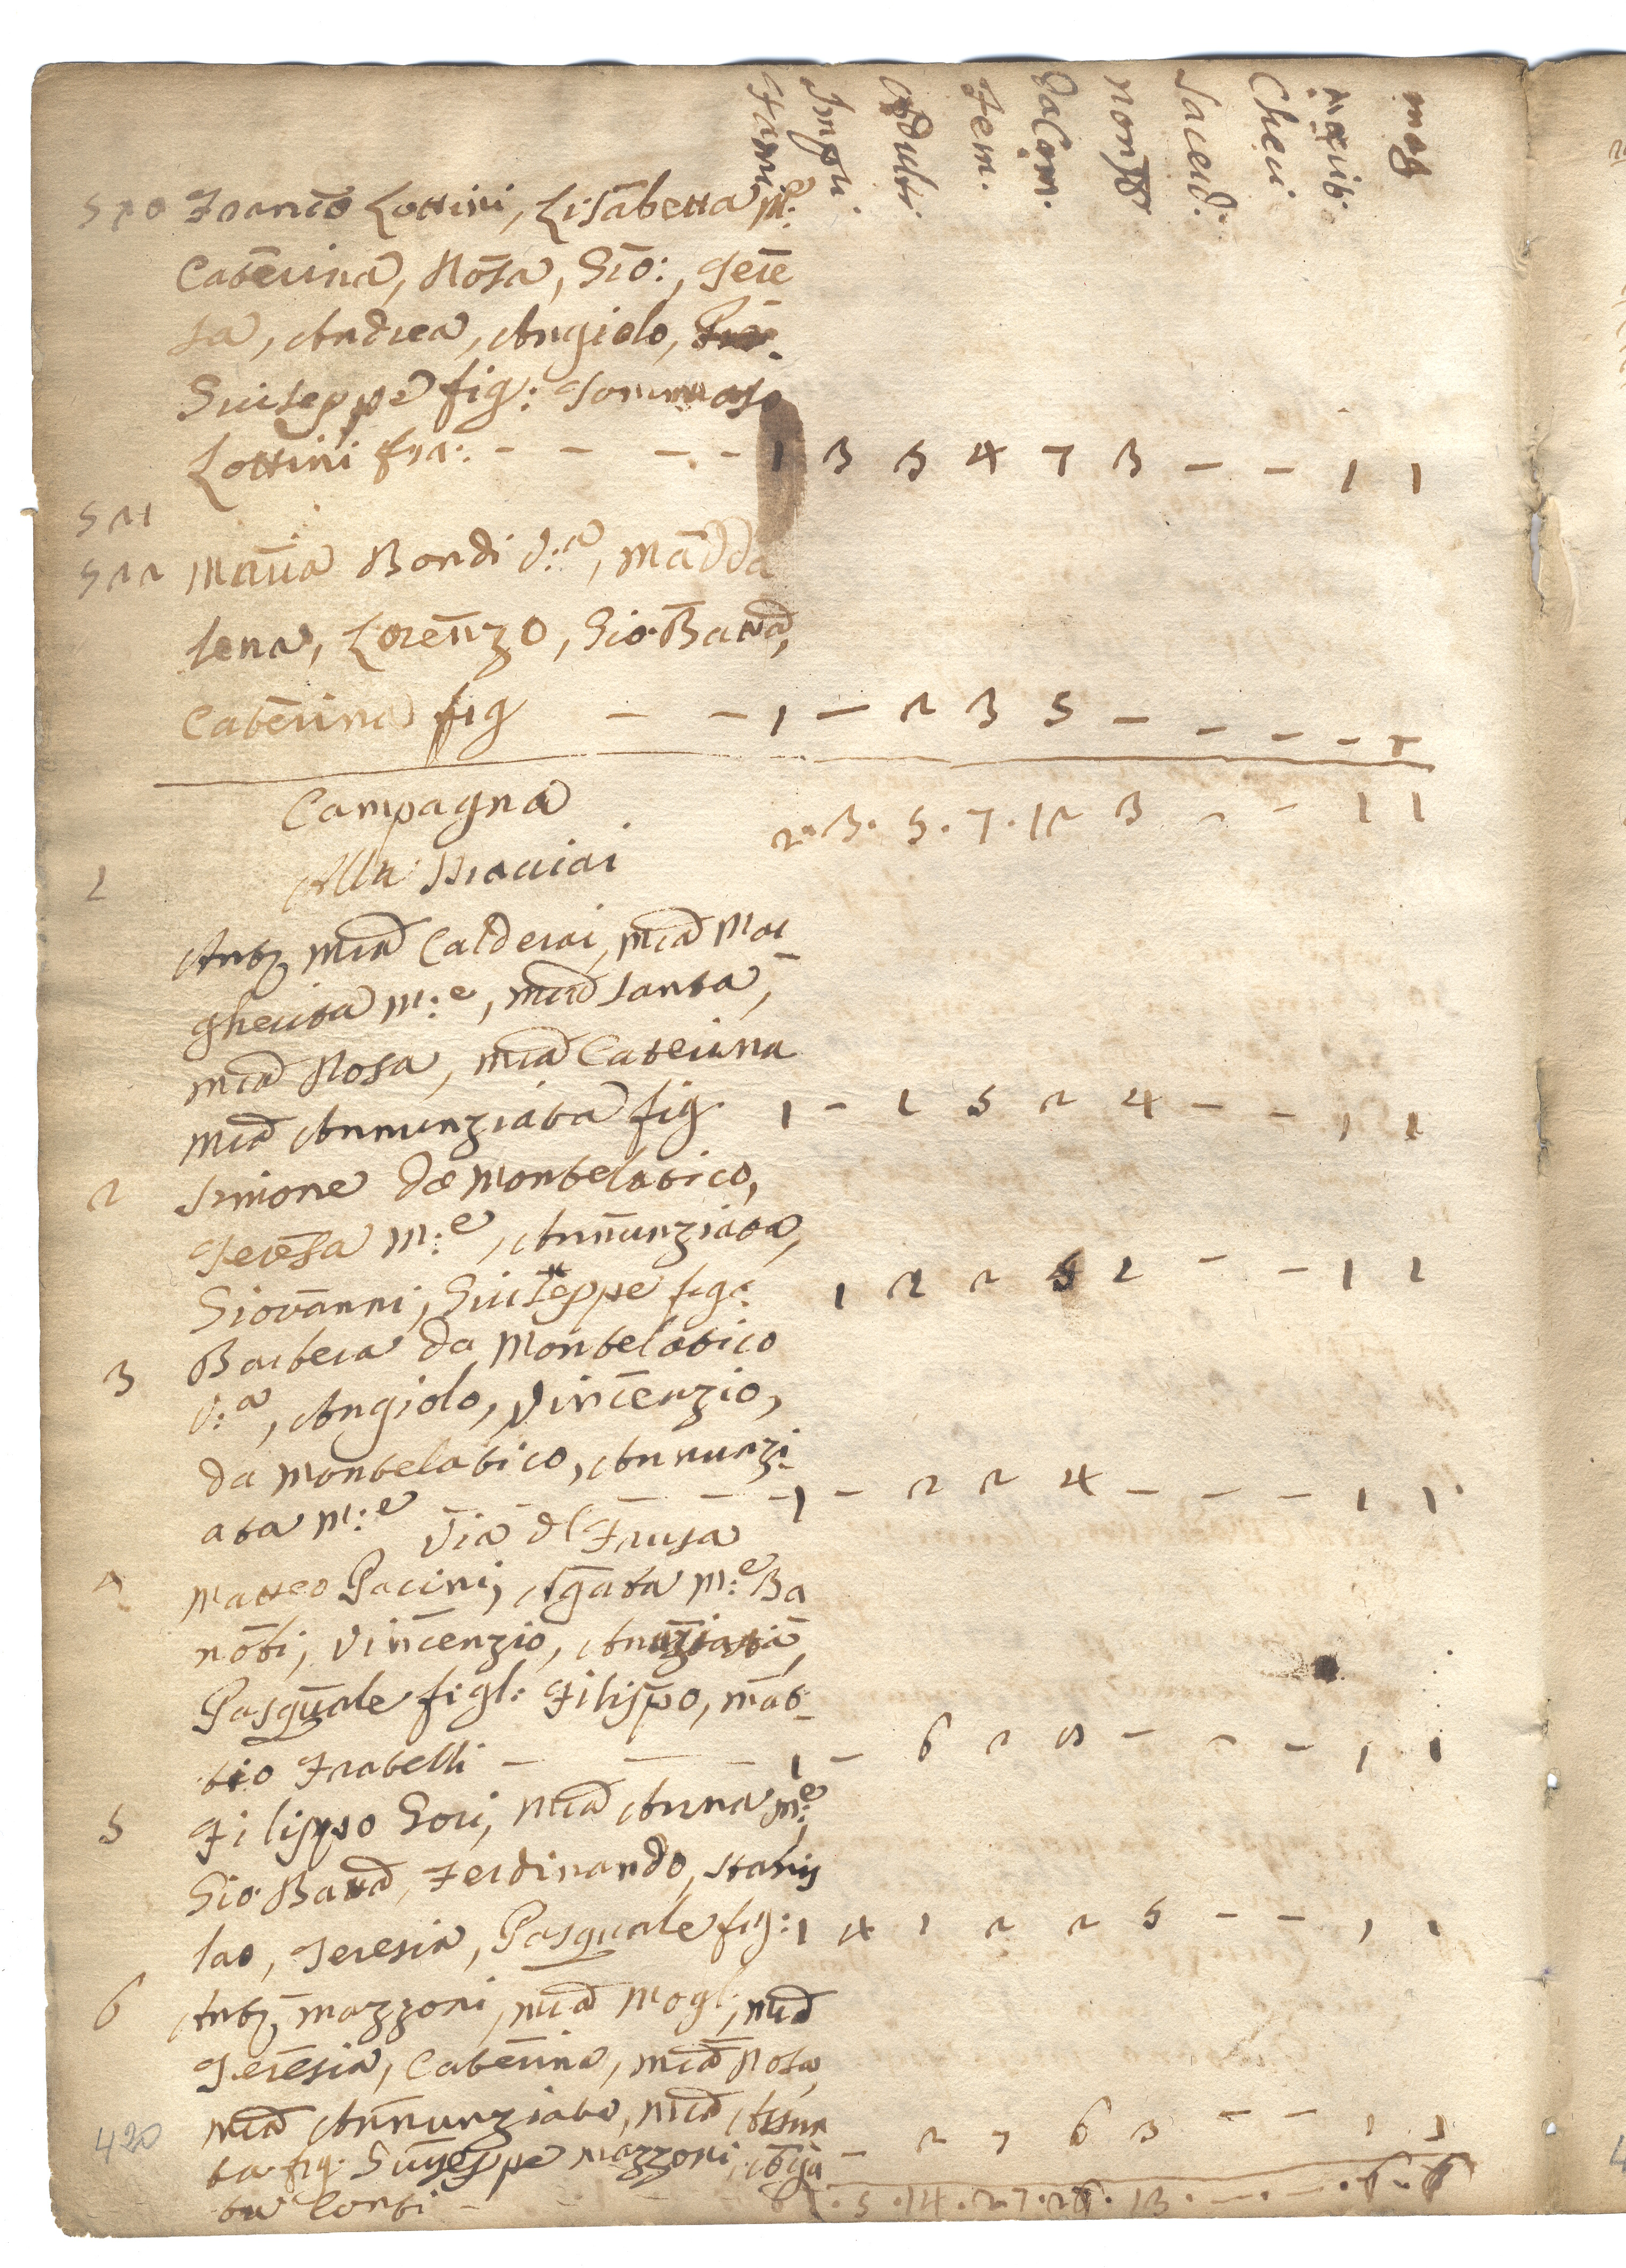 Fam: Impu. Adulti. Fem. Da Com. non Sacerd. Cheri. Marit. mog
520 Franco Lottini, Lisabetta M:e
Caterina, Rosa, Gio:, Tere
sa, Andrea, Angiolo,
Giuseppe fig: Tommaso
Lottini fra: - - - - 1 3 5 4 7 3 - - 1 1
521
522 Maria Bondi V:a, Madda
lena, Lorenzo, Gio Batta,
Caterina fig - - 1 - 2 3 5 - - - -
Campagna
2 . 3 . 5 . 7 . 12 3 - - 1 1
1 Alla
Anto Mia Calderai, Mia Mar
gherita M:e, Mia Santa,
Mia Rosa, Mia Caterina
Mia Annunziata fig 1 - 1 5 2 4 - - 1 1
2 Simone da Montelatico,
Teresa M:e, Annunziata,
Giovanni, Giuseppe fig: 1 2 2 1 - - 1 1
3 Barbera da Montelatico
V:a, Angiolo, Vincenzio,
da Montelatico, Annunzi
ata M:e - - - - 1 - 2 2 4 - - - 1 1
Via dl Frusa
4 Matteo Pacini, Agata M:e Ba
Vincenzio,
Pasquale figl: Filippo, Mat
tio Fratelli - - - 1 - 6 2 8 - - - 1 1
5 Filippo Gori, Mia Anna M:e,
Gio Batta, Ferdinando, Stanis
lao, Teresia, Pasquale fig: 1 4 1 2 2 5 - - 1 1
6 Anto Mazzoni, Mia Mogl:, Mia
Teresia, Caterina, Mia Rosa
Mia Annunziata, Mia Assun
420 ta fig. Giuseppe Mazzoni, - 2 7 6 3 - - 1 1
ta Conti - 6 . 5 . 14 . 27 . . 13 . - . - . 6 . 6